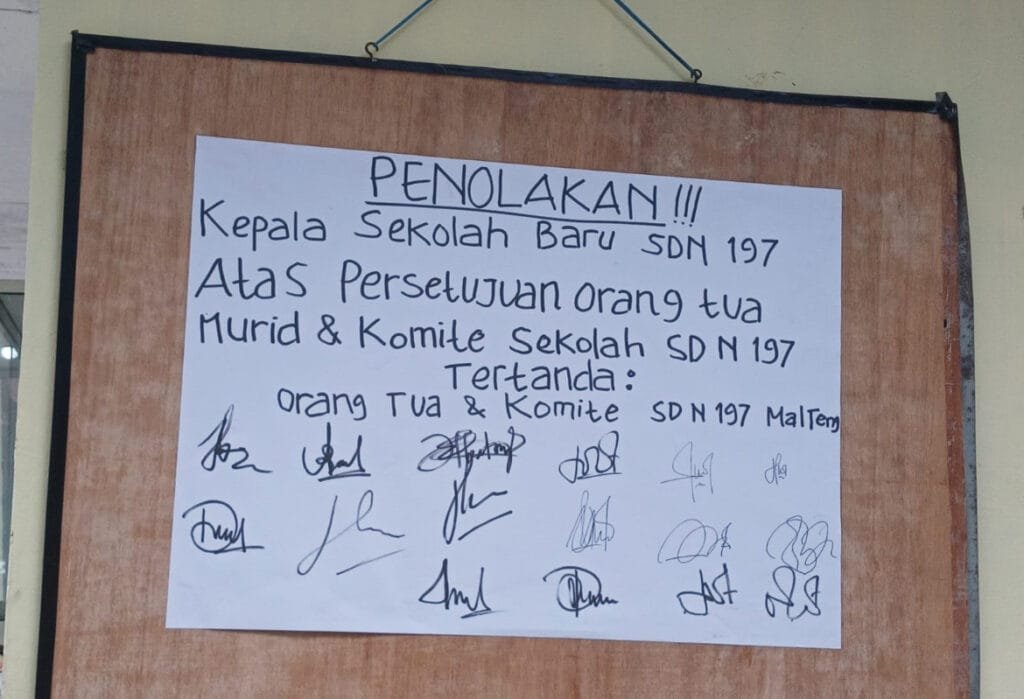 PENOLAKAN !!!
Kepala Sekolah Baru SDN 197
Atas Persetujuan orang tua
Murid & Komite Sekolah SDN 197
Tertanda :
orang Tua & Komite SDN 197 MalTeng